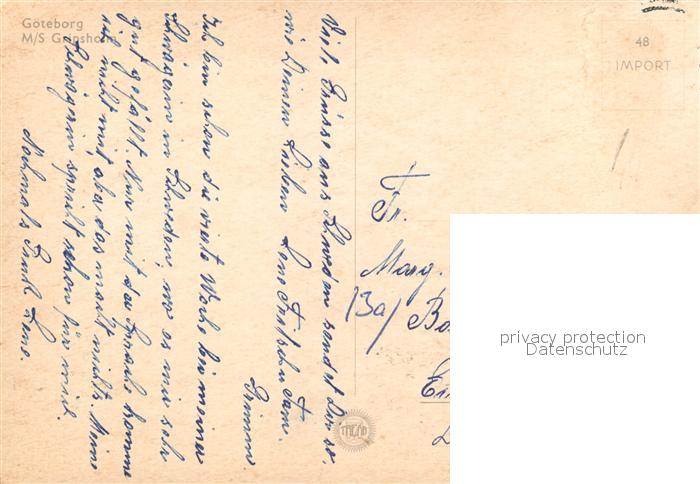 Göteborg
M/S Gripsholm
Viele Grüsse aus Schweden sendet Dir so-
wie Deinen Lieben Lene
Grimm.
Ich bin schon die vierte Woche bei meiner
Schwägerin in Schweden, wo es mir sehr
gut gefällt. Nur mit der Sprache komme
ich nicht mit, aber das macht nichts. Meine
Schwägerin spricht schon für mich.
Nochmals Lene
48
IMPORT
Fr.
Marg.
13a/
privacy protection
Datenschutz